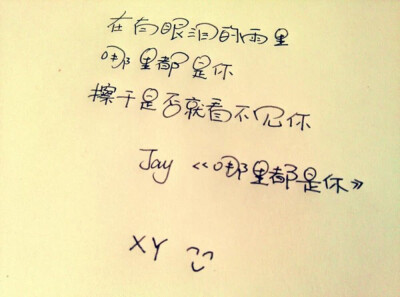 在向眼泪的雨里
哪里都是你
擦干是否就看不见你
Jay 《哪里都是你》
XY